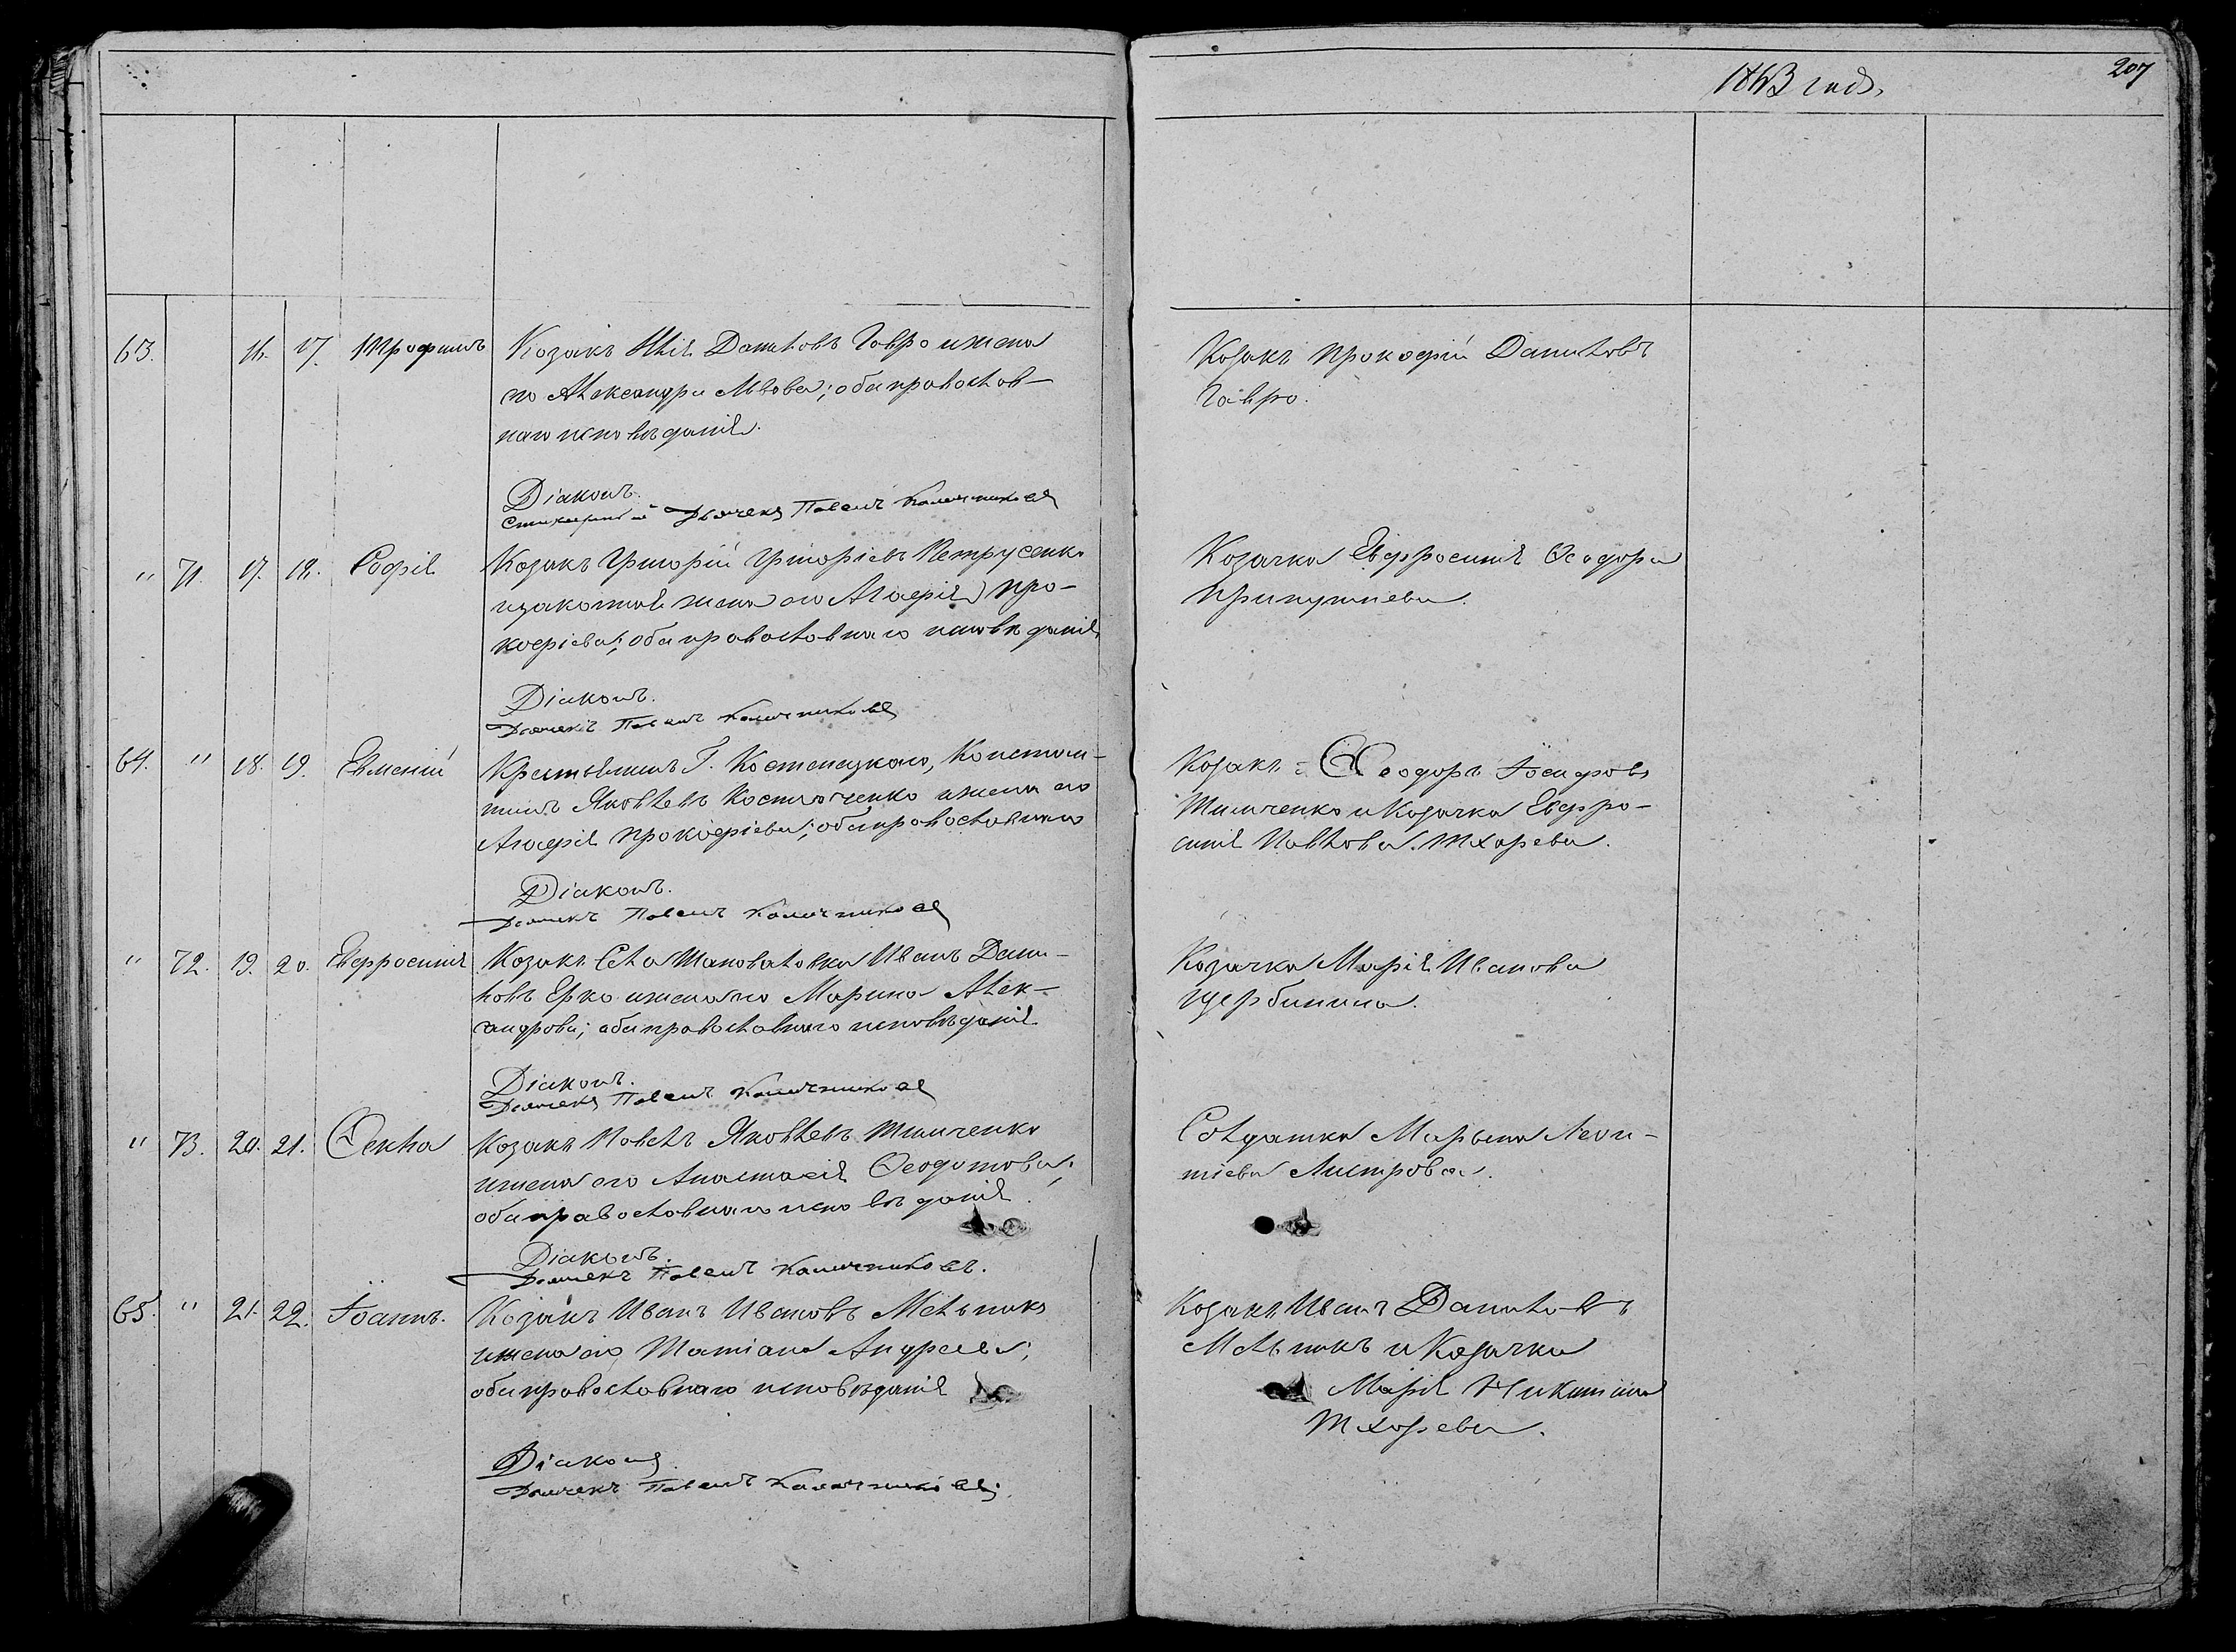 1863 года.
207
63. 16. 17. Трофимъ
Козакъ Илія Даниловъ Гавро и жена
го Александра Львова; оба православ-
наго исповѣданія.
Діаконъ.
Стихарный Дьячекъ Павелъ Калачниковъ
Козакъ Прокофій Даниловъ
Гавро.
" 71. 17. 18. Софія
Козакъ Григорій Григоріевъ Петрусенко
изаконная жена его Агафія Про-
кофіева; оба православнаго исповѣданія
Діаконъ.
Дьячекъ Павелъ Калачниковъ
Козачка Евфросинія Ѳеодора
Припутнева.
64. " 18. 19. Евменій
Крестьянинъ Г. Костенецкаго, Констан-
тинъ Яковлевъ Костюченко и жена его
Агафія Прокофіева; оба православнаго
Діаконъ.
Дьячекъ Павелъ Калачниковъ
Козакъ Ѳеодоръ Іосифовъ
Тимченко и Козачка Евфро-
синія Павлова Тхорева.
" 72. 19. 20. Евфросинія
Козакъ Села Шаповаловки Иванъ Дани-
ловъ Ерко и жена го Марина Алек-
сандрова; оба православнаго исповѣданія
Діаконъ.
Дьячекъ Павелъ Калачниковъ
Козачка Марія Иванова
Щербинина.
" 73. 20. 21. Ѳекла
Козакъ Павелъ Яковлевъ Тимченко
и жена его Анастасія Ѳеодотова;
оба православнаго исповѣданія.
Діаконъ.
Дьячекъ Павелъ Калачниковъ.
Солдатка Марьяна Леон-
тіева Листрова.
65. " 21. 22. Іоаннъ.
Козакъ Иванъ Ивановъ Мельникъ
и жена его Татіана Андреева;
оба православнаго исповѣданія
Діаконъ.
Дьячекъ Павелъ Калачниковъ.
Козакъ Иванъ Даниловъ
Мельникъ и Козачка
Марія Никитина
Тхорева.